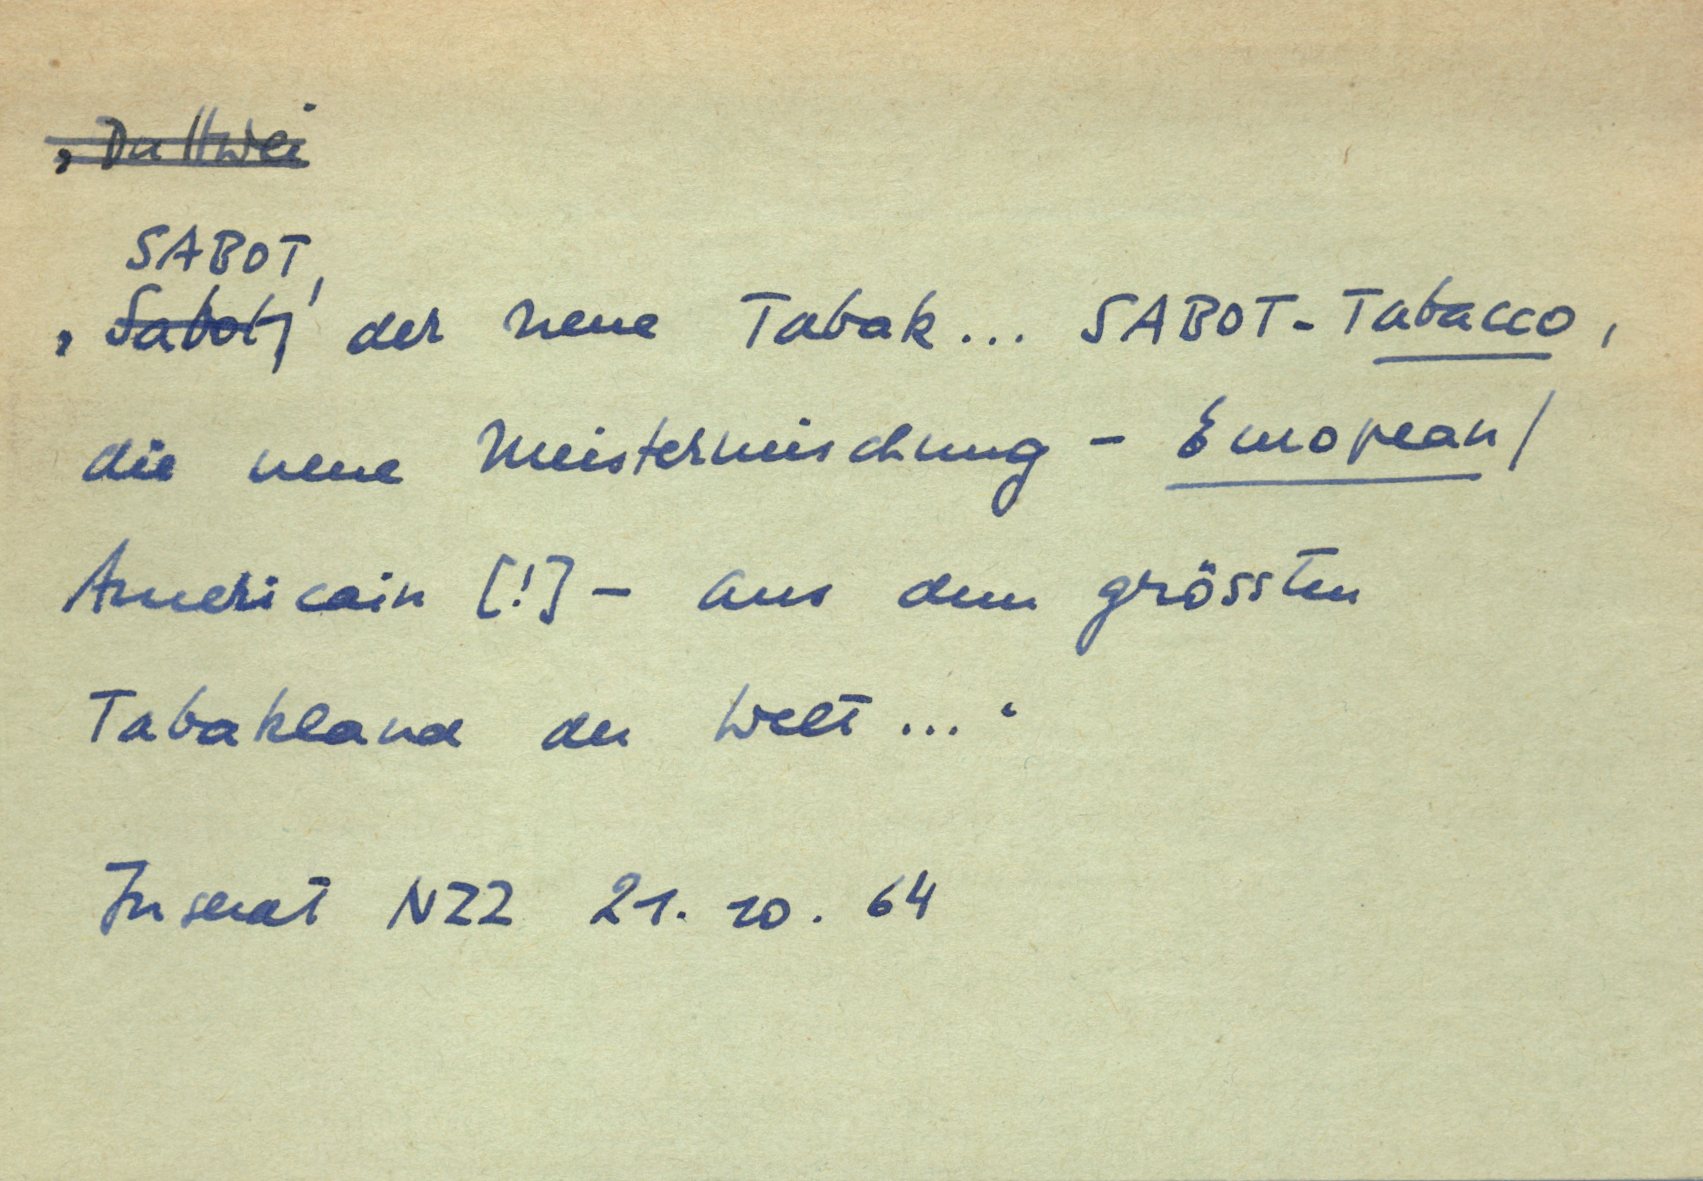 SABOT,
‚ Sabot, der neue Tabak... SABOT-Tabacco,
die neue Meistermischung – European/
Americain [!] – aus dem grössten
Tabakland der Welt ... ‘
Inserat NZZ 21. 10. 64